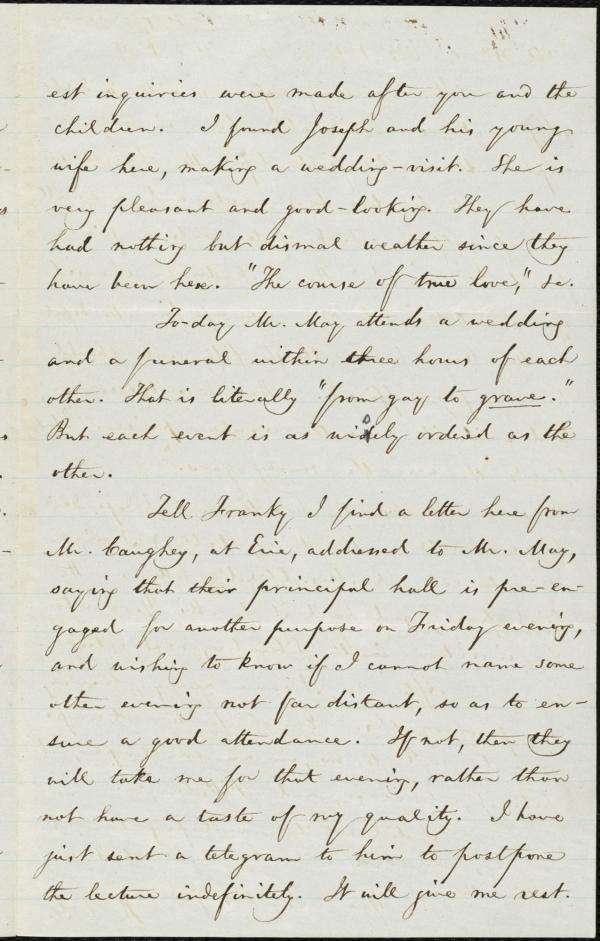 est inquiries were made after you and the
children. I found Joseph and his young
wife here, making a wedding-visit. She is
very pleasant and good-looking. They have
had nothing but dismal weather since they
have been here. "The course of true love," &c.
To-day Mr. May attends a wedding
and a funeral within three hours of each
other. That is literally "from gay to grave."
But each event is as wisely ordered as the
other.
Tell Franky I find a letter here from
Mr. Caughey, at Erie, addressed to Mr. May,
saying that their principal hall is pre-en-
gaged for another purpose on Friday evening,
and wishing to know if I cannot name some
other evening not far distant, so as to en-
sure a good attendance. If not, then they
will take me for that evening, rather than
not have a taste of my quality. I have
just sent a telegram to him to postpone
the lecture indefinitely. It will give me rest.